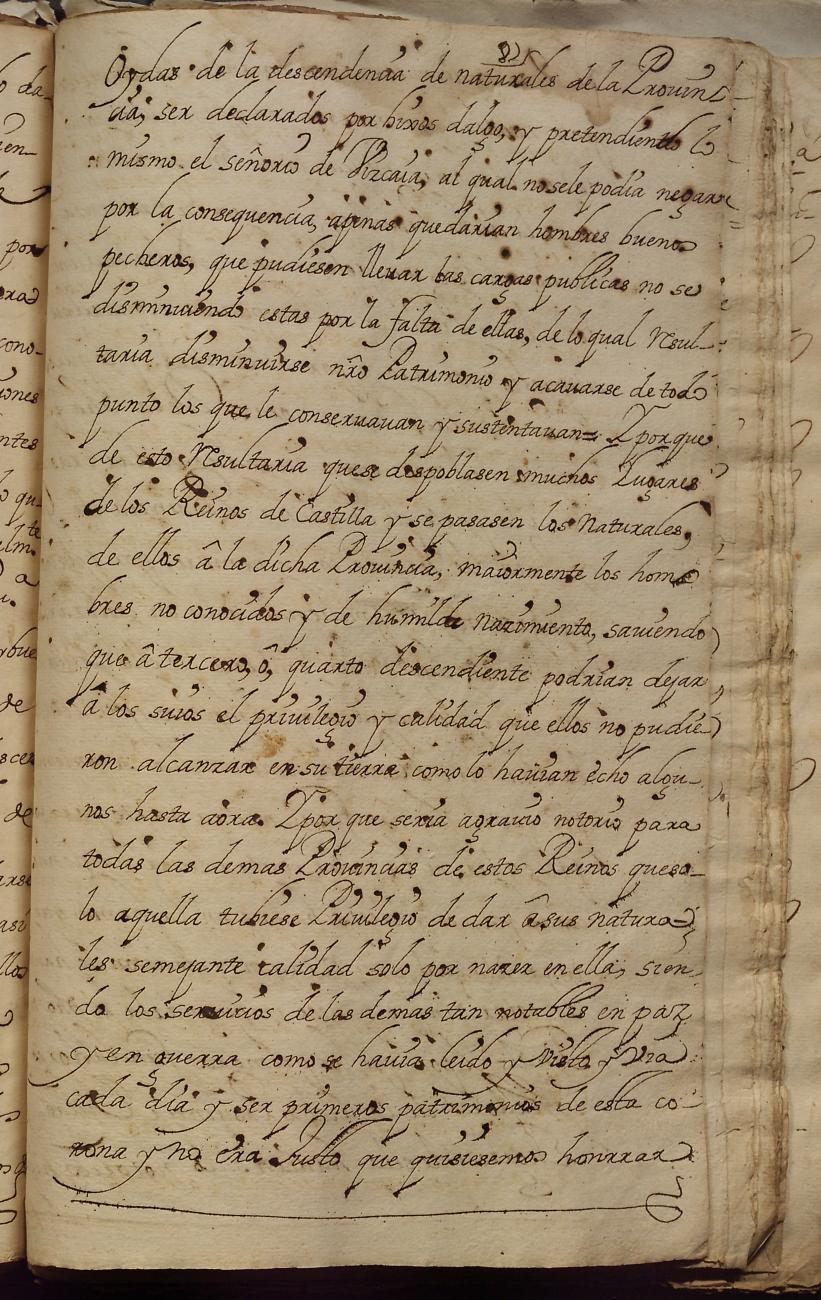 Oydas de la descendencia de naturales de la Provin-
cia, ser declarados por hixos dalgo, y pretendiendo lo
mismo el señorio de Vizcaia, al qual no sele podia negar
por la consequencia, apenas quedarian hombres buenos
pecheros, que pudiesen lleuar las cargas publicas no se
disminuiendo estas por la falta de ellas, de lo qual resul-
taria disminuirse nrõ Patrimonio y acauarse de todo
punto los que le conseruauan y sustentauan= Y porque
de esto resultaria quese despoblasen muchos Lugares
de los Reinos de Castilla y se pasasen los Naturales,
de ellos â la dicha Prouincia, maiormente los hom
bres no conocidos y de humilde nazimiento, sauiendo
que â tercero, ô, quarto descendiente podrian dejar
â los suios el priuilegio y calidad que ellos no pudie
ron alcanzar en su tierra como lo hauian echo algu-
nos hasta aora. Y por que seria agrauio notorio para
todas las demas Prouincias de estos Reinos queso-
lo aquella tubiese Priuilegio de dar â sus natura-
les semejante calidad solo por nazer en ella, sien-
do los seruicios de las demas tan notables en paz
y en guerra como se hauia leido y visto y via
cada dia y ser primeros patrimonios de esta co-
rona y no era Justo que quisiesemos honrrar